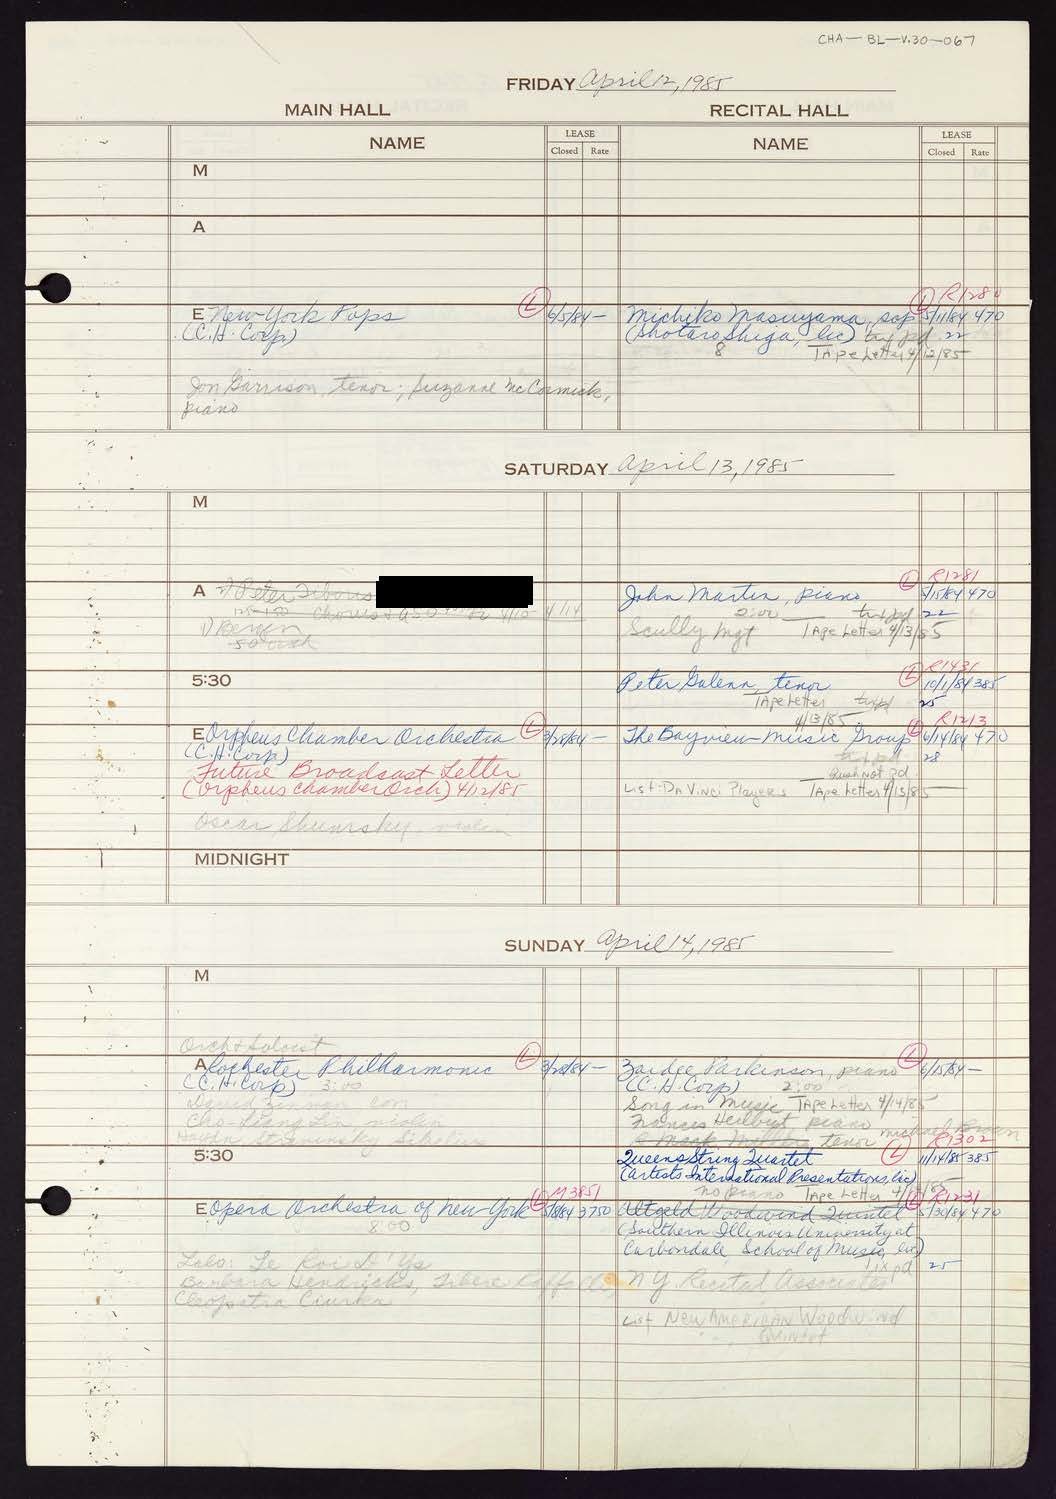 CHA-BL-V.30-067
FRIDAY April 12, 1985
MAIN HALL RECITAL HALL
NAME LEASE Closed Rate NAME LEASE Closed Rate
M
A
R1280
E New York Pops (L) 6/5/84 — Michiko Masuyama, sop (L) 5/11/84 470
(C.H. Corp) (Shotaro Shiga, lic) 22
8 TApe Letter 4/12/85
Jon Garrison, tenor; Suzanne McCormick,
piano
SATURDAY April 13, 1985
M
R1281
A Peter Tiboris John Martin, piano (L) 5/15/84 470
Chorus 4/14 2:00 22
Scully Mgt TApe Letter 4/13/85
R1431
5:30 Peter Galenn, tenor (L) 10/1/84 385
TApe Letter 25
4/13/85 R1213
E Orpheus Chamber Orchestra (L) 3/28/84 — The Bayview Music Group (L) 6/14/84 470
(C.H. Corp) 28
Future Broadcast Letter
(Orpheus Chamber Orch) 4/12/85 List: Da Vinci Players TApe Letter 4/13/85
Oscar Shumsky, violin
MIDNIGHT
SUNDAY April 14, 1985
M
Orch + Soloist
A Rochester Philharmonic (L) 3/28/84 — Zaidee Parkinson, piano (L) 6/15/84 —
(C.H. Corp) 3:00 (C.H. Corp) 2:00
David Zinman con Song in Music TApe Letter 4/14/85
Cho-Liang Lin, violin piano
Haydn Stravinsky Sibelius tenor R1302
5:30 Queens String Quartet (L) 11/14/85 385
(Artists International Presentations, lic)
no piano TApe Letter
M3851 R1231
E Opera Orchestra of New York (L) 5/8/84 3750 Altgeld Woodwind Quintet (L) 5/30/84 470
8:00 (Southern Illinois University at
Carbondale School of Music, lic)
25
Lalo: Le Roi D'Ys
Barbara Hendricks, NY Recital Associates
Cleopatra Ciurca
List New American Woodwind
Quintet